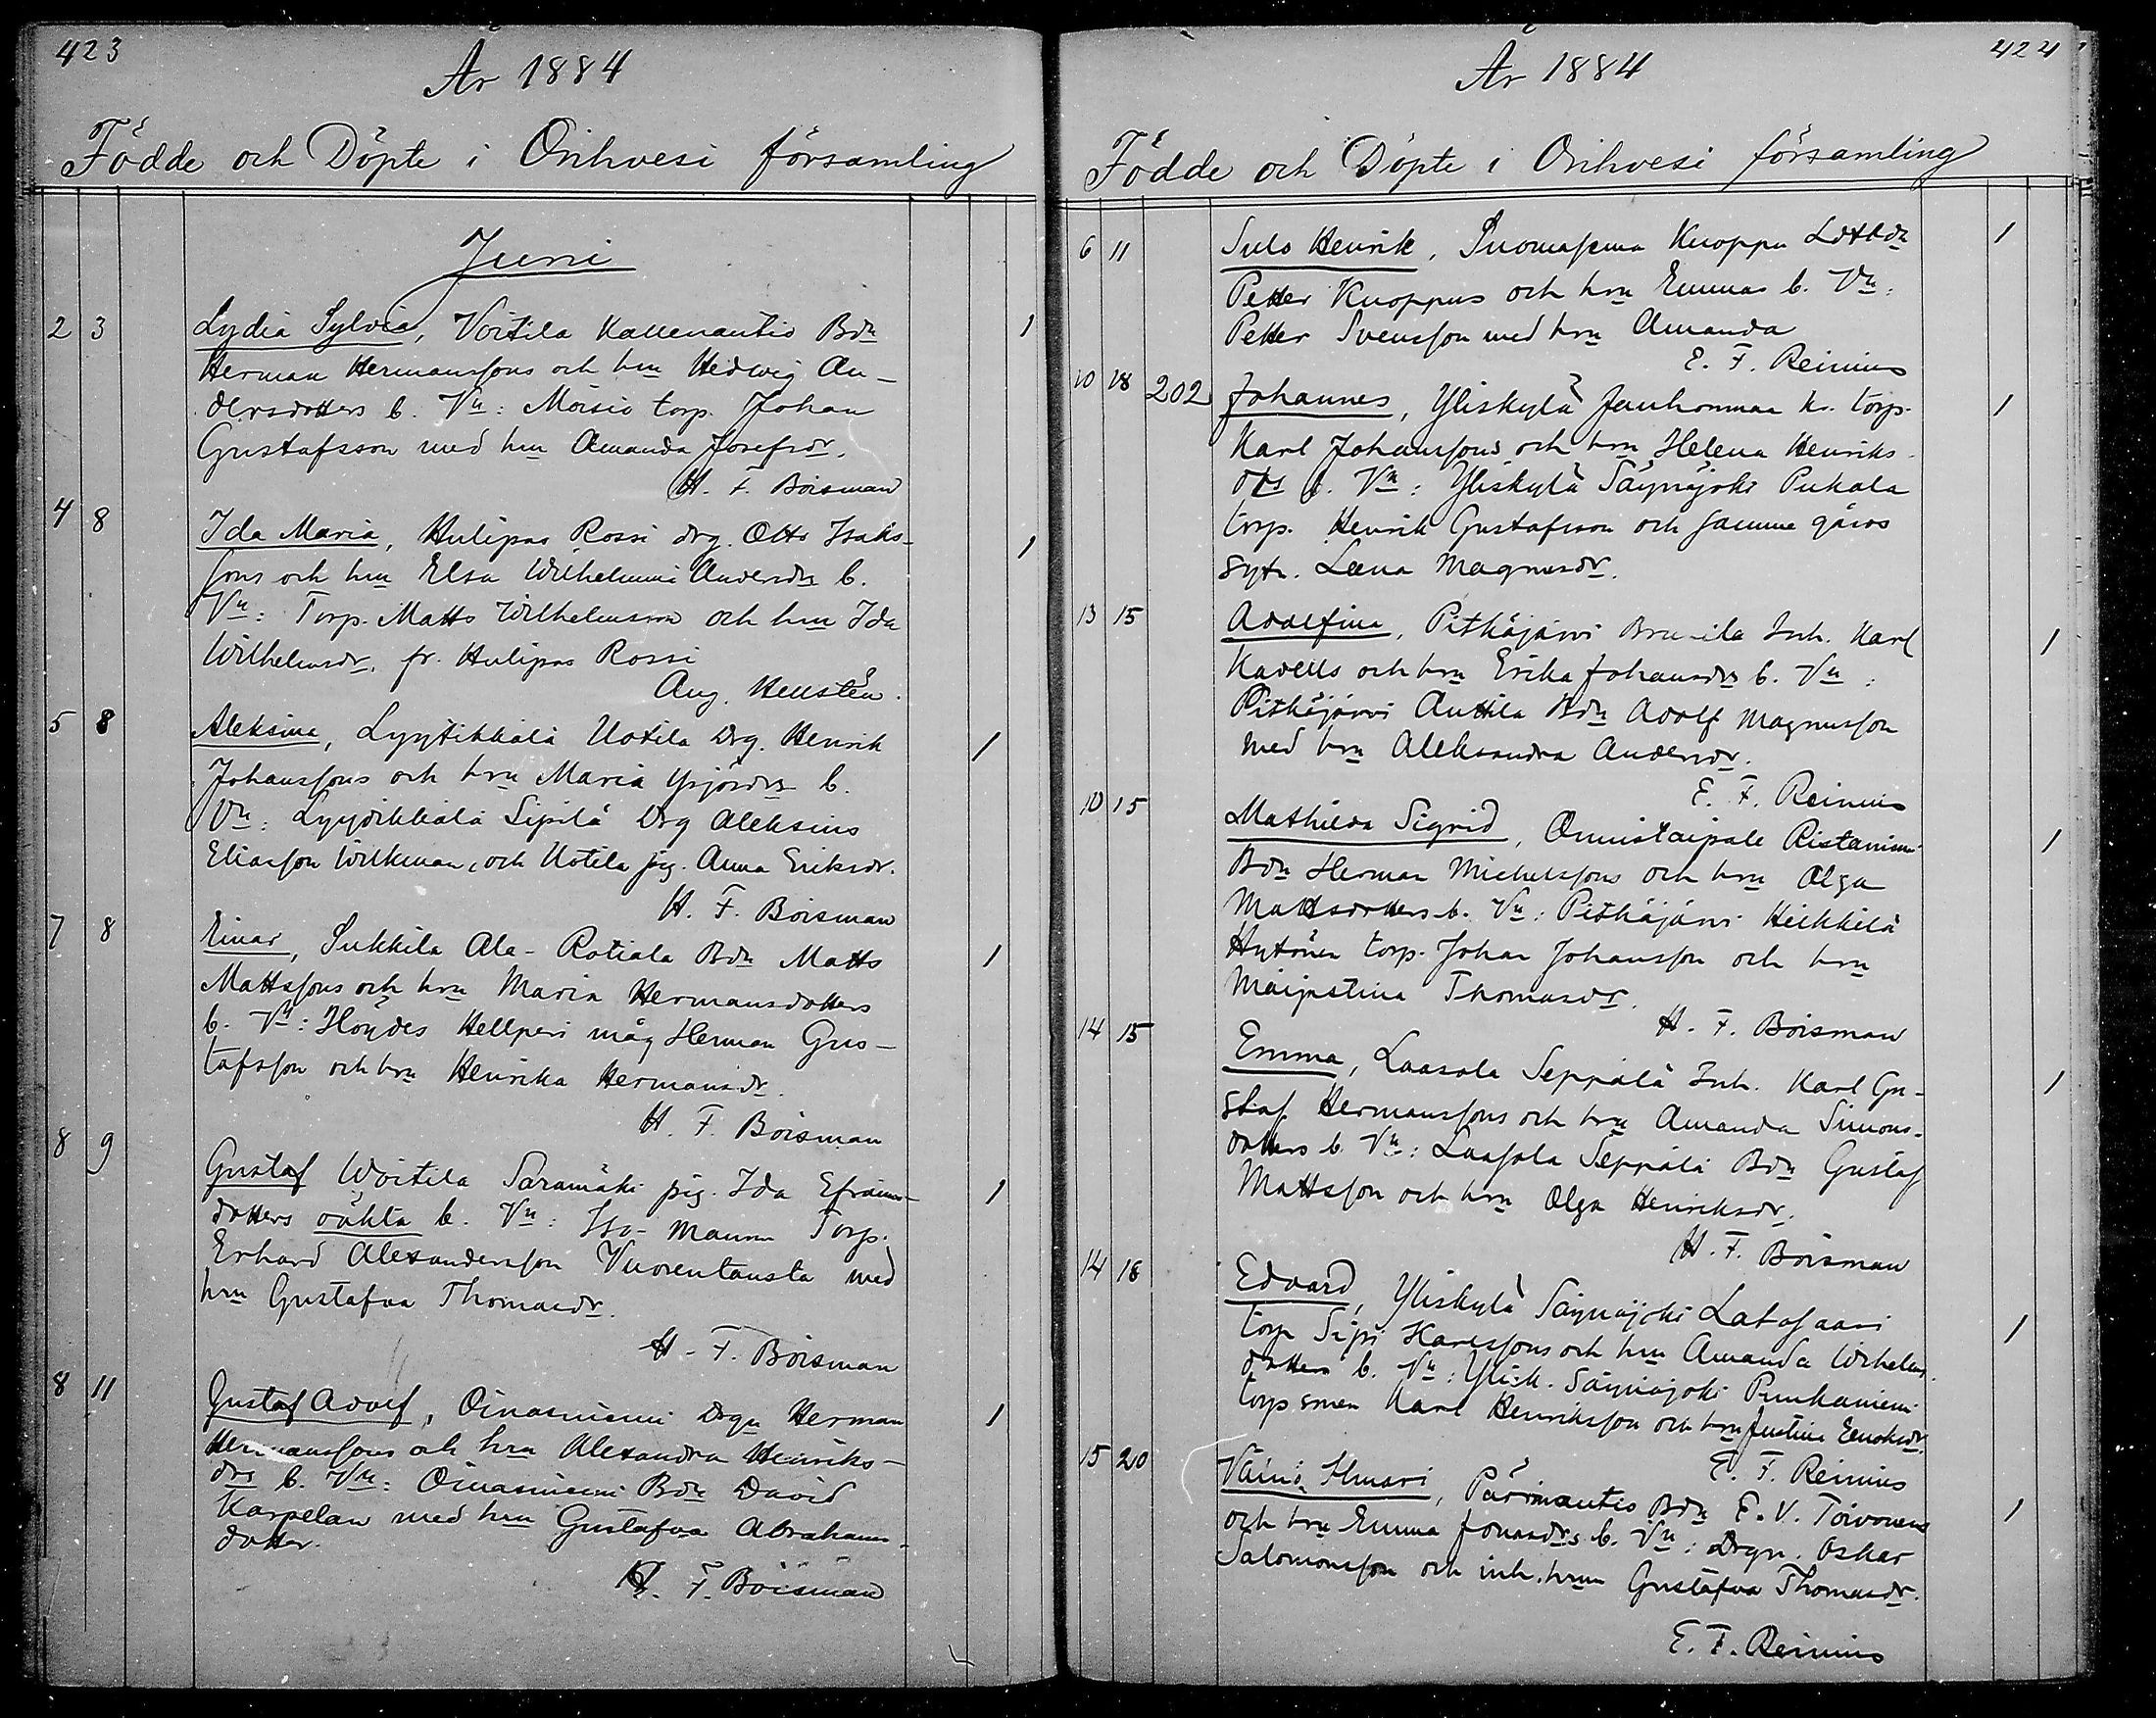 423
År 1884
Födde och Döpte i Orihvesi församling
Juni
2 3 Lydia Sylvia, Voitila Kallenautio Bdn 1
Herman Hermanssons och hru Hedvig An-
dersdotters b. Vn: Moisio torp. Johan
Gustafsson med hru Amanda Josefsdr.
H. F. Boisman
4 8 Ida Maria, Hulipas Rossi drg. Otto Isaks- 1
sons och hru Elsa Wilhelmina Andersdrs b.
Vn: Torp. Matts Wilhelmsson och hru Ida
Wilhelmsdr. fr. Hulipas Rossi
Aug. Hellstén.
5 8 Aleksina, Lyytikkälä Uotila Drg. Henrik 1
Johanssons och hru Maria Yrjösdrs b.
Vn: Lyydikkälä Sipilä Drg Aleksius
Eliasson Wilkman, och Uotila pig. Anna Eriksdr.
H. F. Boisman
7 8 Einar, Sukkila Ala-Rotiala Bdn Matts 1
Mattssons och hru Maria Hermansdotters
b. Vn: Höydes Hellperi måg Herman Gus-
tafsson och hru Henrika Hermansdr.
H. F. Boisman
8 9 Gustaf Woitila Saramäki pig. Ida Efraims- 1
dotters oäkta b. Vn: Iso-Maunu Torp.
Erhard Alexandersson Vuorentausta med
hru Gustafva Thomasdr.
H. F. Boisman
8 11 Gustaf Adolf, Oinasniemi Drgn Herman 1
Hermanssons och hru Alexandra Henriks-
drs b. Vn: Oinasniemi Bdn David
Karpelan med hru Gustafva Abrahams-
dotter.
H. F. Boisman
424
År 1884
Födde och Döpte i Orihvesi församling
6 11 Sulo Henrik, Knoppu 1
Petter Knoppus och hru Emmas b. Vn:
Petter Svensson med hru Amanda
E. F. Reinius
10 18 202 Johannes, Yliskylä Jauhonmaa torp. 1
Karl Johanssons och hru Helena Henriks-
drs b. Vn: Yliskylä Säynäjoki Pukala
torp. Henrik Gustafsson och samme gårds
sytn. Lena Magnusdr.
13 15 Adolfina, Pitkäjärvi Inh. Karl 1
Kavells och hru Erika Johansdrs b. Vn:
Pitkäjärvi Anttila Bdn Adolf Magnusson
med hru Aleksandra Andersdr.
E. F. Reinius
10 15 Mathilda Sigrid, Onnistaipale Ristaniemi 1
Bdn Herman Michelssons och hru Olga
Mattsdotters b. Vn: Pitkäjärvi Heikkilä
Hytönen torp. Johan Johansson och hru
Majastina Thomasdr.
H. F. Boisman
14 15 Emma, Laasola Seppälä Inh. Karl Gu- 1
staf Hermanssons och hru Amanda Simons-
dotters b. Vn: Laasola Seppälä Bdn Gustaf
Mattsson och hru Olga Henriksdr.
H. F. Boisman
14 18 Edvard, Yliskylä Säynäjoki Latosaari 1
torp Sipi Karlssons och hru Amanda Wilhelms-
dotters b. Vn: Ylisk. Säynäjoki Punkaniemi
torp smen Karl Henriksson och hru Justina Enoksdr.
E. F. Reinius
15 20 Väinö Ilmari, Pärinautio Bdn E. V. Toivonens 1
och hru Emma Jonasdrs b. Vn: Drgn. Oskar
Salomonsson och inh. hrun Gustafva Thomasdr.
E. F. Reinius